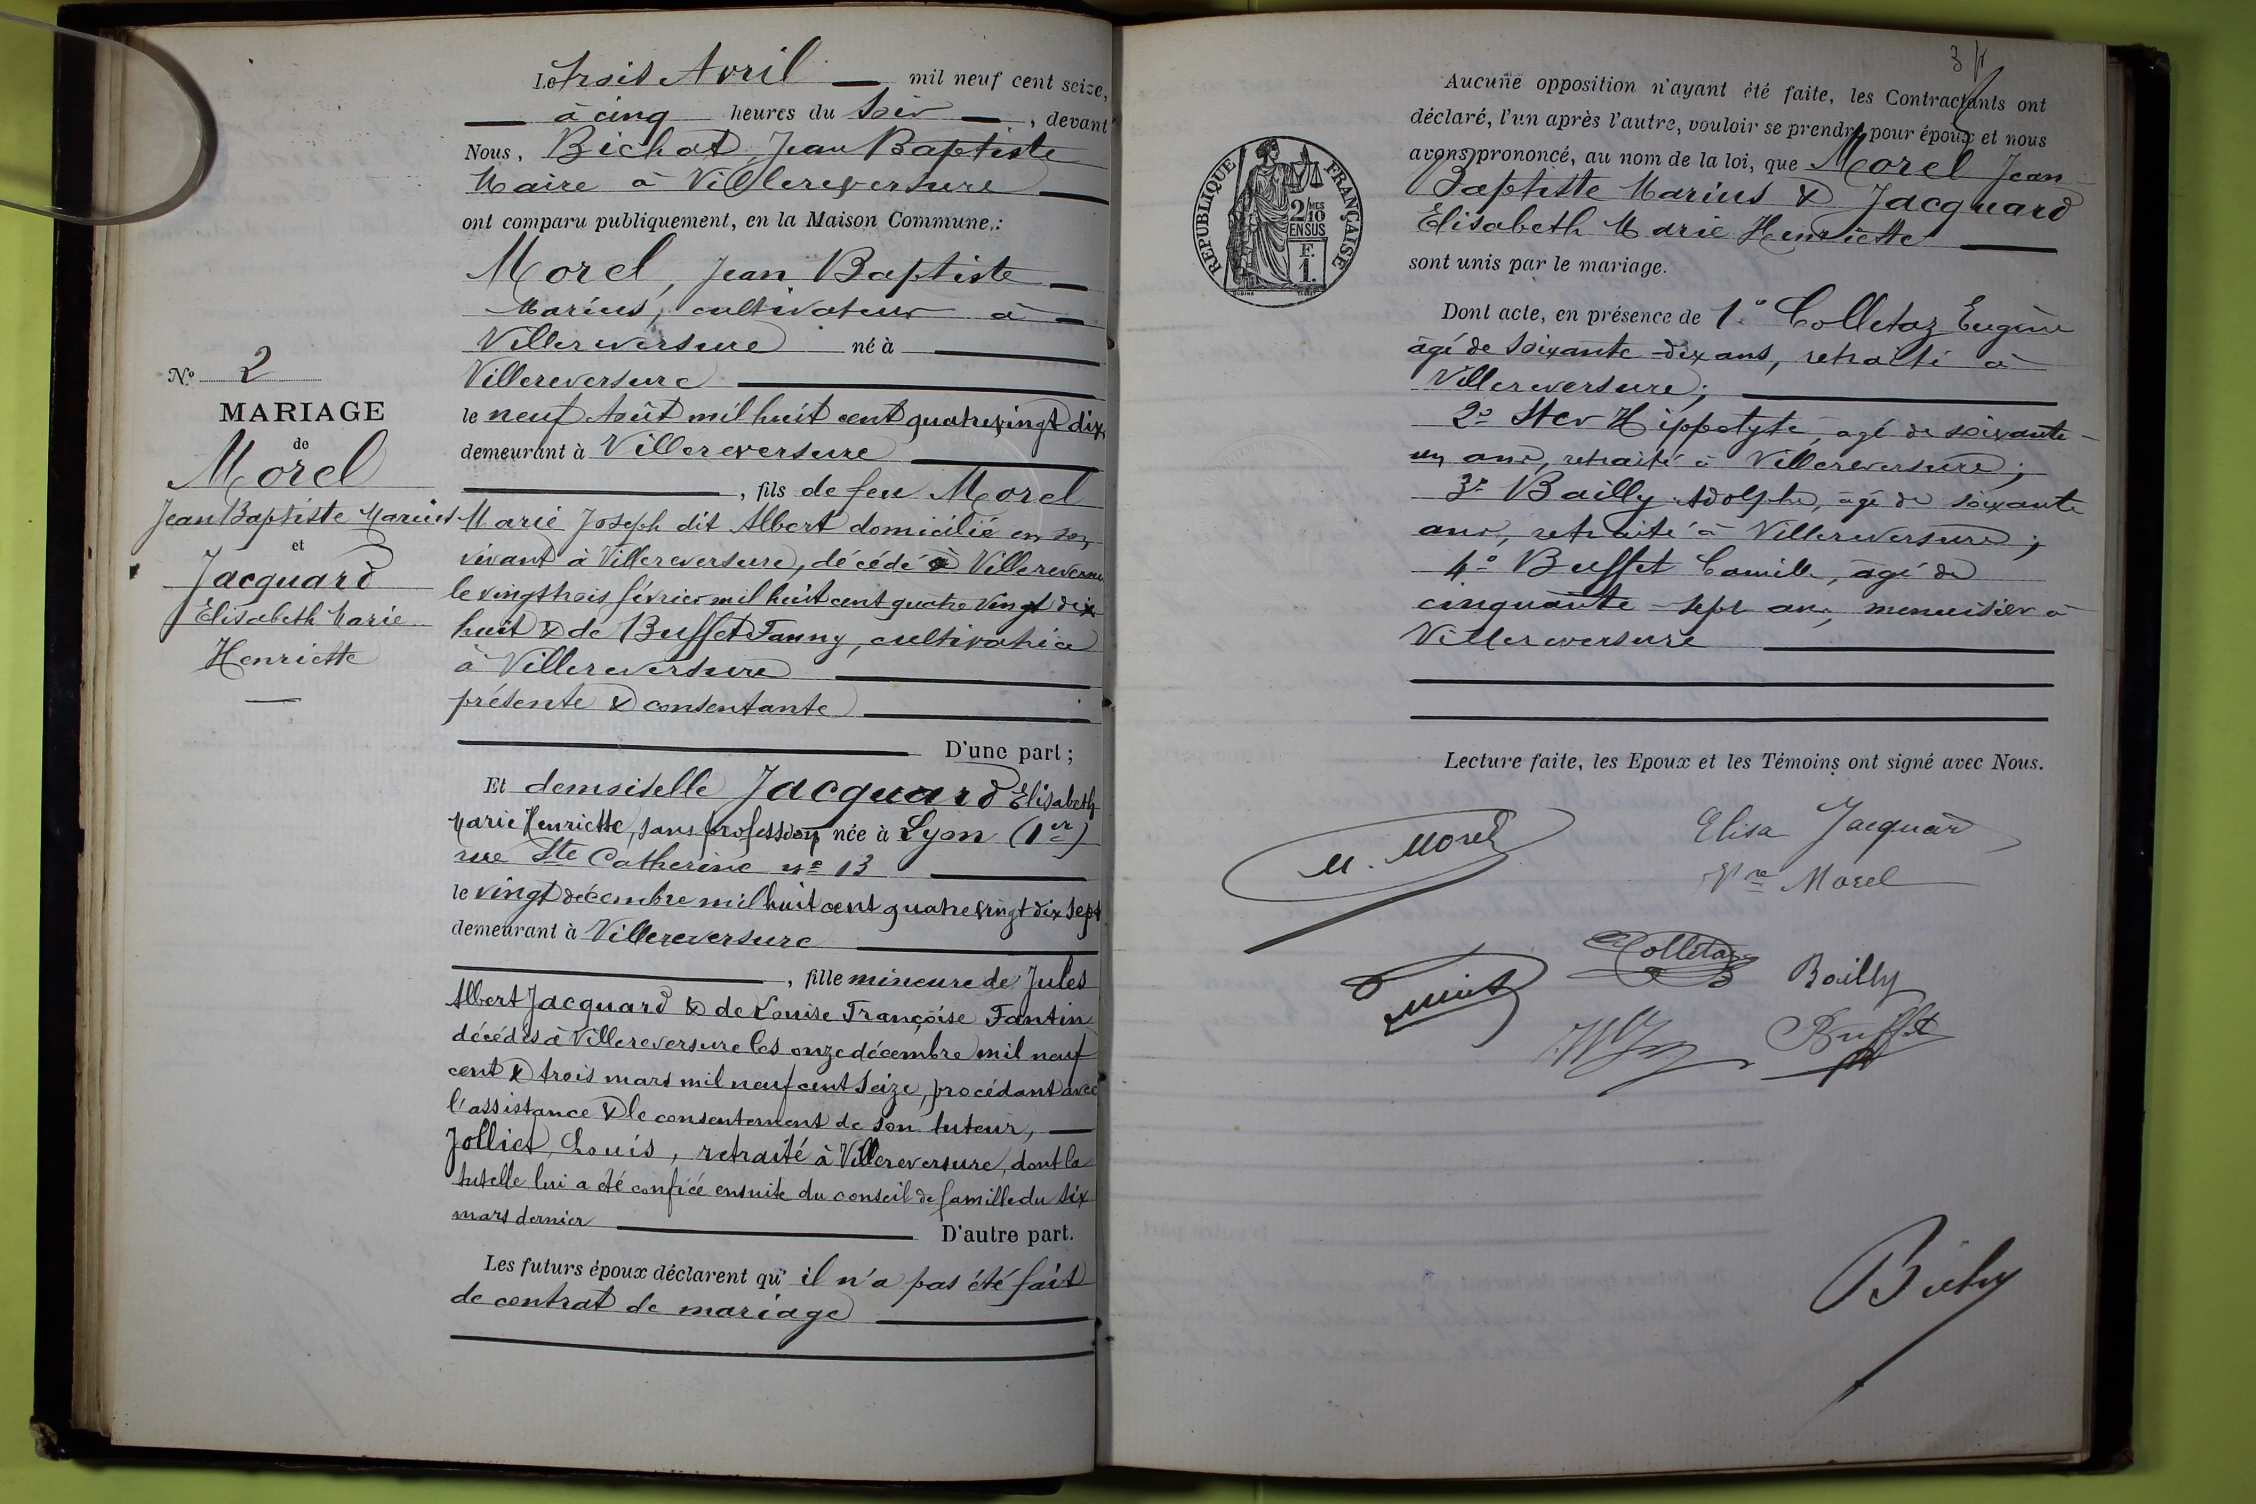 Le trois Avril mil neuf cent seize,
à cinq heures du soir, devant
Nous, Bichat, Jean Baptiste
Maire à Villereversure
ont comparu publiquement, en la Maison Commune :
Morel, Jean Baptiste
Marius, cultivateur à
Villereversure né à
Villereversure
le neuf Août mil huit cent quatre vingt dix
demeurant à Villereversure
, fils de feu Morel
Marie Joseph dit Albert domicilié en son
vivant à Villereversure, décédé à Villereversure
le vingt trois février mil huit cent quatre vingt dix
huit & de Buffet Fanny, cultivatrice
à Villereversure
présente & consentante
D'une part ;
Et demoiselle Jacquard Elisabeth
Marie Henriette, sans profession, née à Lyon (1er)
rue Ste Catherine no 13
le vingt décembre mil huit cent quatre vingt dix sept
demeurant à Villereversure
, fille mineure de Jules
Albert Jacquard & de Louise Françoise Fantin
décédés à Villereversure les onze décembre mil neuf
cent & trois mars mil neuf cent seize, procédant avec
l'assistance & le consentement de son tuteur,
Jolliet, Louis, retraité à Villereversure, dont la
tutelle lui a été confiée ensuite du conseil de famille du six
mars dernier D'autre part.
Les futurs époux déclarent qu'il n'a pas été fait
de contrat de mariage
No 2
MARIAGE
de
Morel
Jean Baptiste Marius
et
Jacquard
Elisabeth Marie
Henriette
3
RÉPUBLIQUE FRANÇAISE
2/10 MES
EN SUS
F.
1.
Aucune opposition n'ayant été faite, les Contractants ont
déclaré, l'un après l'autre, vouloir se prendre pour époux et nous
avons prononcé, au nom de la loi, que Morel Jean
Baptiste Marius & Jacquard
Elisabeth Marie Henriette
sont unis par le mariage.
Dont acte, en présence de 1° Colletaz Eugène
âgé de soixante-dix ans, retraité à
Villereversure ;
2° Ster Hippolyte, âgé de soixante-
un ans, retraité à Villereversure ;
3° Bailly Adolphe, âgé de soixante
ans, retraité à Villereversure ;
4° Buffet Camille, âgé de
cinquante-sept ans, menuisier à
Villereversure
Lecture faite, les Epoux et les Témoins ont signé avec Nous.
M. Morel
Elisa Jacquard
Vve Morel
Colletaz
Bailly
Buffet